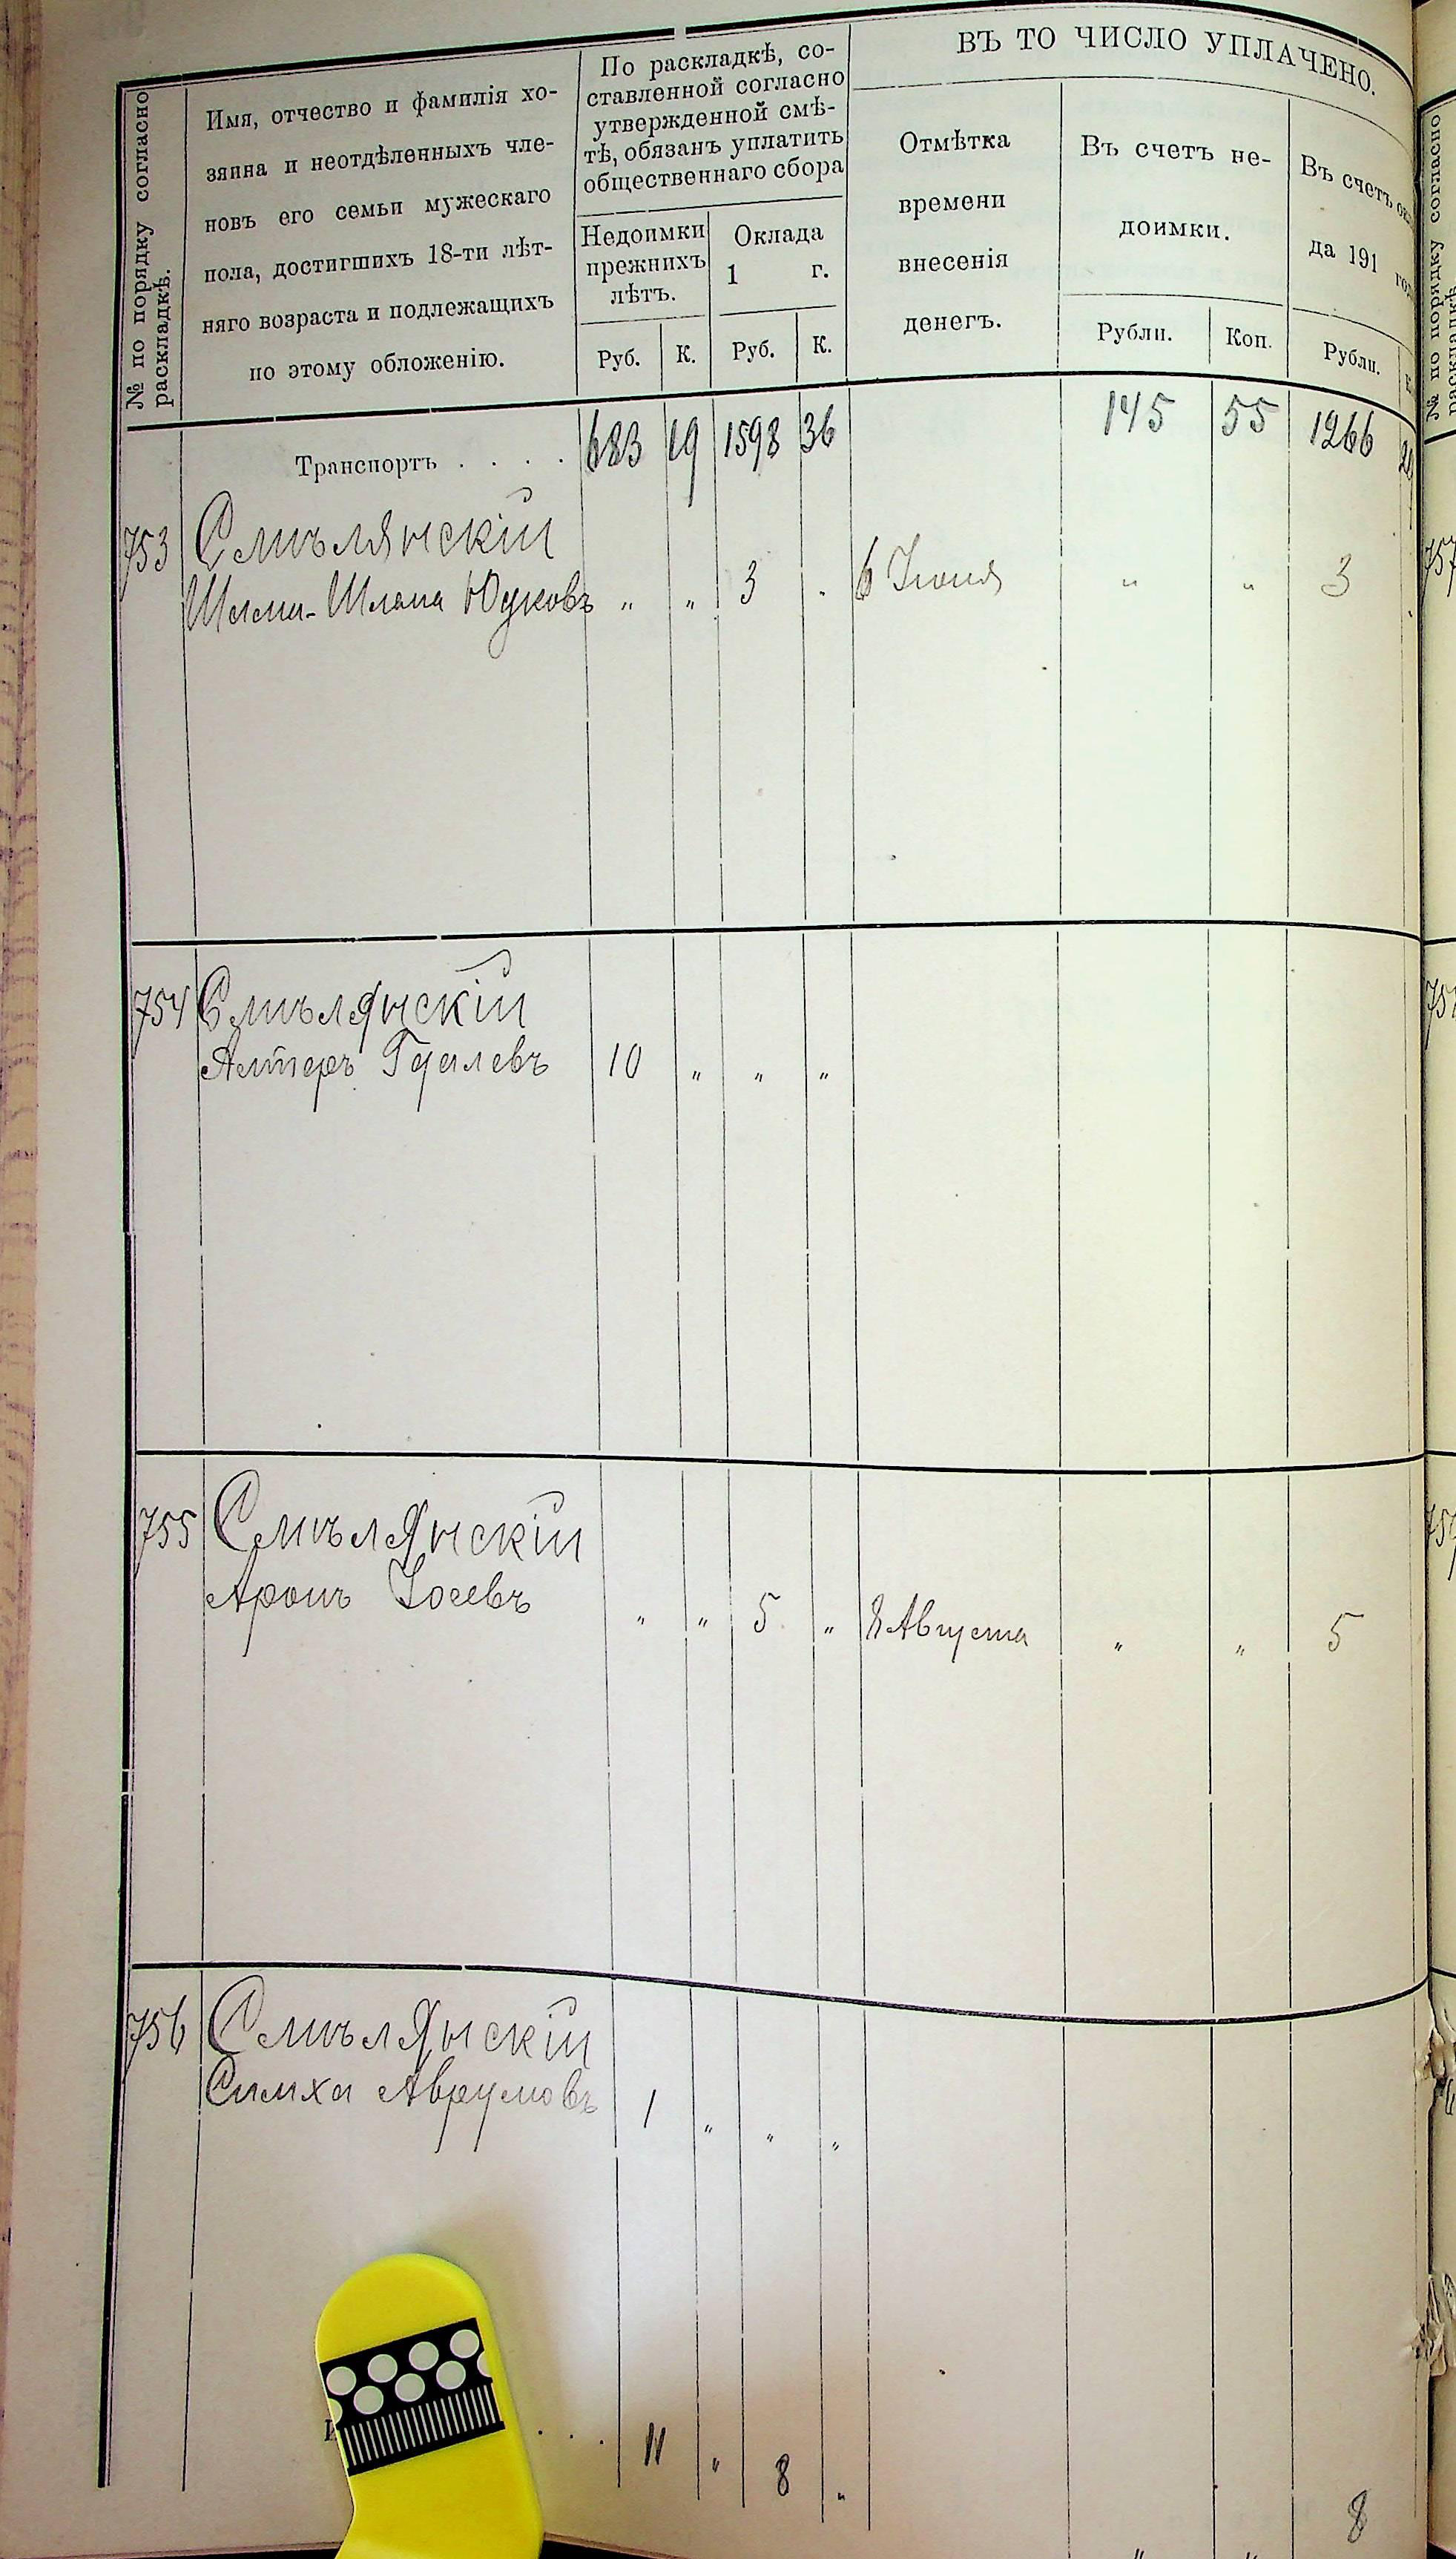 № по порядку согласно
раскладкѣ.
Имя, отчество и фамилія хо-
зяина и неотдѣленныхъ чле-
новъ его семьи мужескаго
пола, достигшихъ 18-ти лѣт-
няго возраста и подлежащихъ
по этому обложенію.
По раскладкѣ, со-
ставленной согласно
утвержденной смѣ-
тѣ, обязанъ уплатить
общественнаго сбора
Недоимки
прежнихъ
лѣтъ.
Оклада
1 г.
Руб. К. Руб. К.
ВЪ ТО ЧИСЛО УПЛАЧЕНО.
Отмѣтка
времени
внесенія
денегъ.
Въ счетъ не-
доимки.
Рубли. Коп.
Въ счетъ
да 191
Рубли.
Транспортъ . . . . 683 19 1598 36 145 55 1266
753 Смѣлянскій
Шлема-Шлема Юдковъ " " 3 " 6 Іюня " " 3
754 Смѣлянскій
Алтеръ Гдалевъ 10 " " "
755 Смѣлянскій
Аронъ Іосевъ " " 5 " 8 Августа " " 5
756 Смѣлянскій
Симха Аврумовъ 1 " " "
. . . 11 " 8 " " " 8
№ по порядку согласно
раскладкѣ